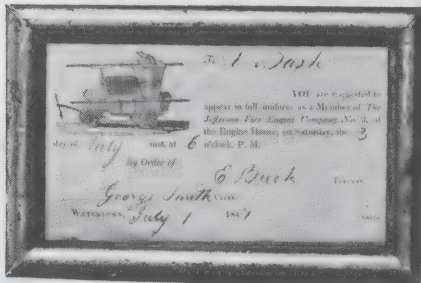 To
YOU are requested to
appear in full uniform as a Member of The
Jefferson Fire Engine Company No. 3, at
the Engine House, on Saturday, the 3
day of July inst. at 6 o'clock, P. M.
By Order of
E Buck Foreman
George Smith Clerk
WATERTOWN, July 1 18